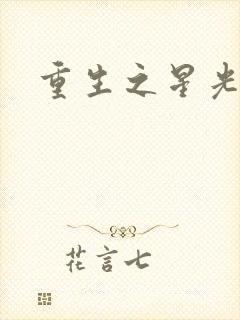 重生之星光
花言七